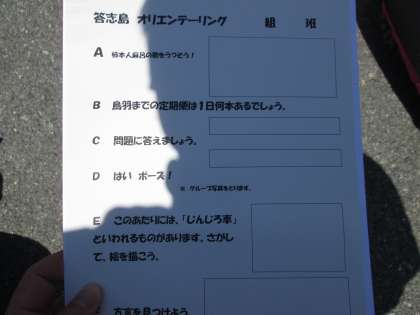 答志島 オリエンテーリング 組 班
A 柿本人麻呂の歌をうつそう!
B 鳥羽までの定期便は1日何本あるでしょう。
C 問題に答えましょう。
D はい ポーズ!
※ グループ写真をとります。
E このあたりには、「じんじろ車」
といわれるものがあります。さがし
て、絵を描こう。
方言を見つけよう